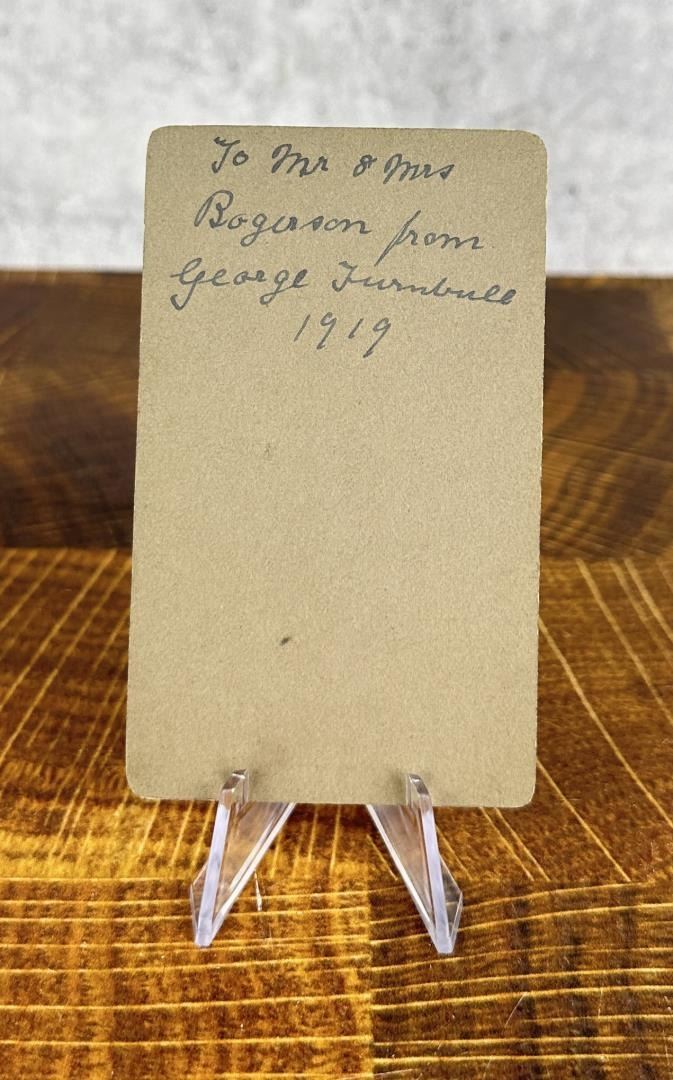 To Mr & Mrs
Bogerson from
George Turnbull
1919